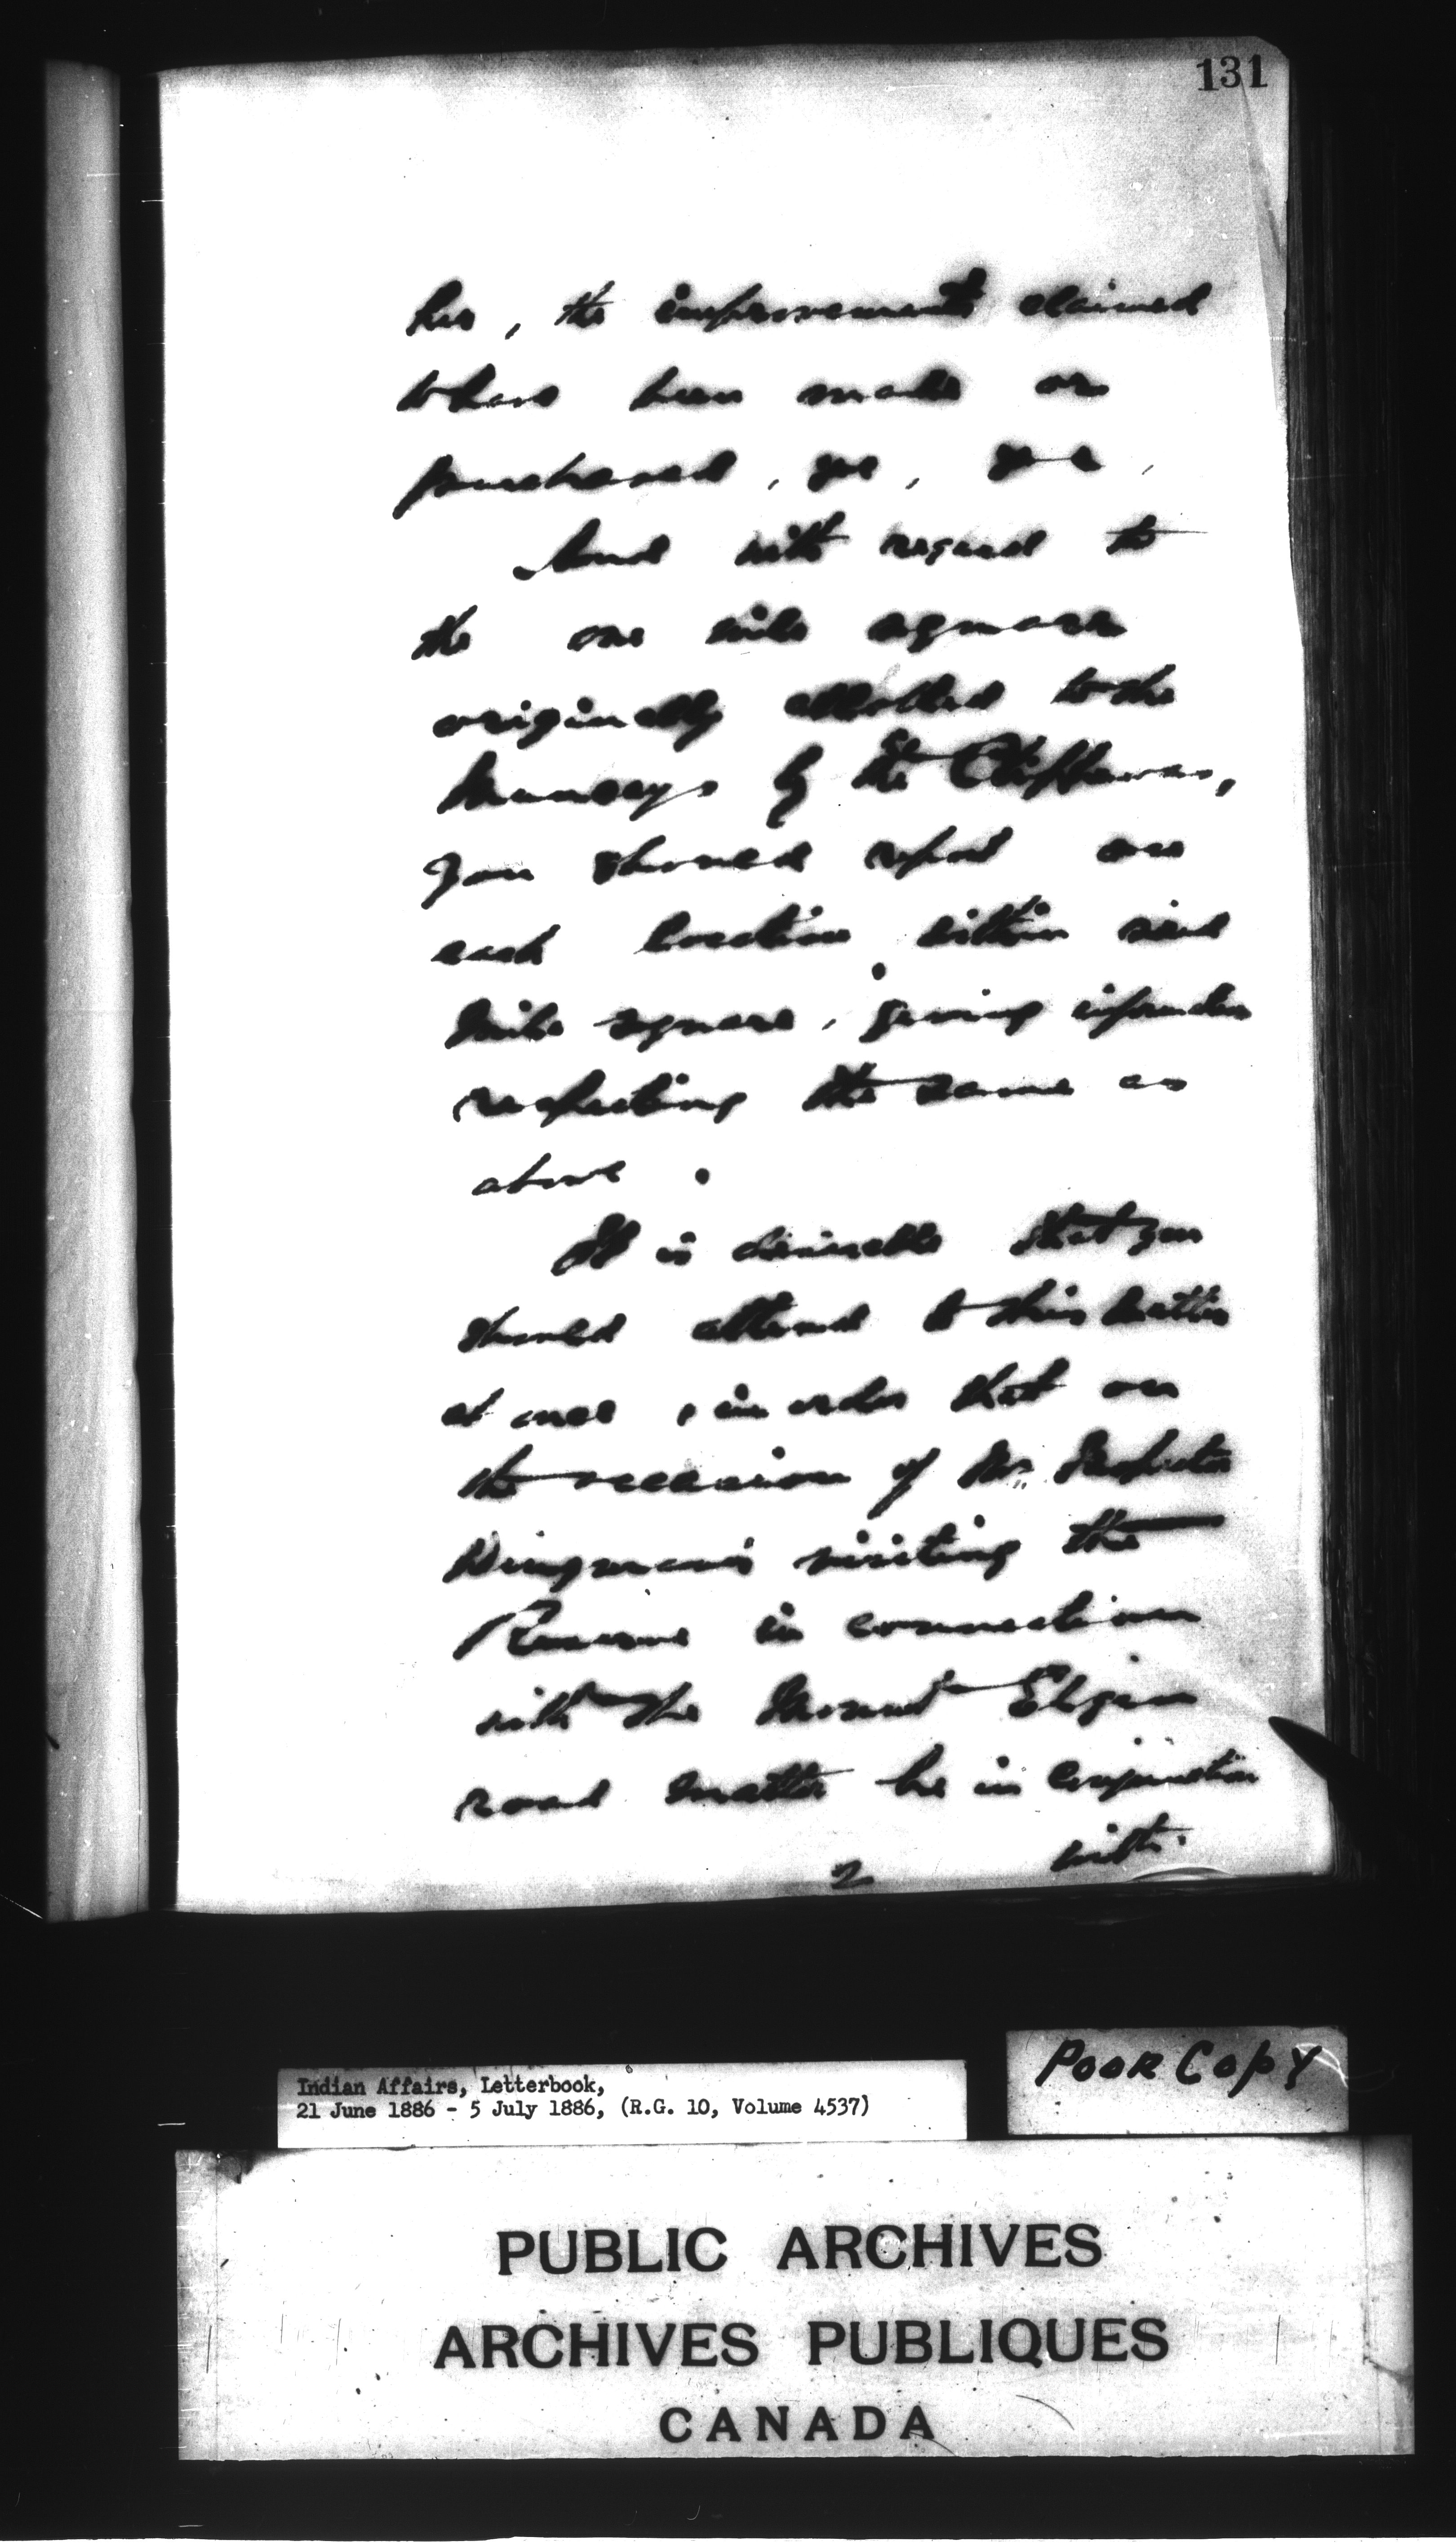 131
her, the improvements claimed
to have been made or
purchased, &c, &c,
And with regard to
the one mile square
originally allotted to the
Munseys by the Chippewas,
you should report on
each location within said
mile square, giving information
respecting the same as
above.
It is desirable that you
should attend to this matter
at once, in order that on
the occasion of Mr. Inspector
Dingman's visiting the
Reserve in connection
with the Mount Elgin
road matter he in conjunction
with
2
Poor Copy
Indian Affairs, Letterbook,
21 June 1886 - 5 July 1886, (R.G. 10, Volume 4537)
PUBLIC ARCHIVES
ARCHIVES PUBLIQUES
CANADA